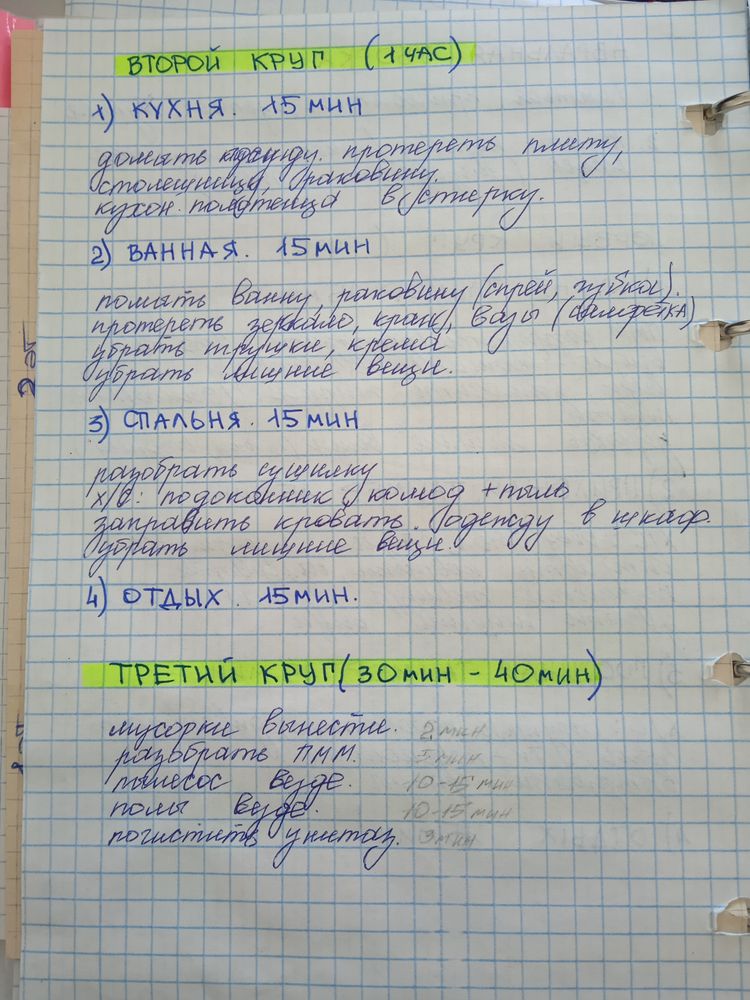 ВТОРОЙ КРУГ (1 ЧАС)
1) КУХНЯ. 15 МИН
домыть протереть плиту,
столешницу, раковину.
кухон. полотенца в стирку.
2) ВАННАЯ. 15 МИН
помыть ванну, раковину (спрей, губка).
протереть зеркало, кран, вазы (салфетка)
убрать трушки, крема
убрать лишние вещи.
3) СПАЛЬНЯ. 15 МИН
разобрать сушилку
х/б: подоконник, комод + пыль
заправить кровать. одежду в шкаф.
убрать лишние вещи.
4) ОТДЫХ. 15 МИН.
ТРЕТИЙ КРУГ (30 МИН - 40 МИН)
мусорки вынести. 2 мин
разобрать ПММ. мин
пылесос везде. 10-15 мин
полы везде. 10-15 мин
почистить унитаз. 3 мин